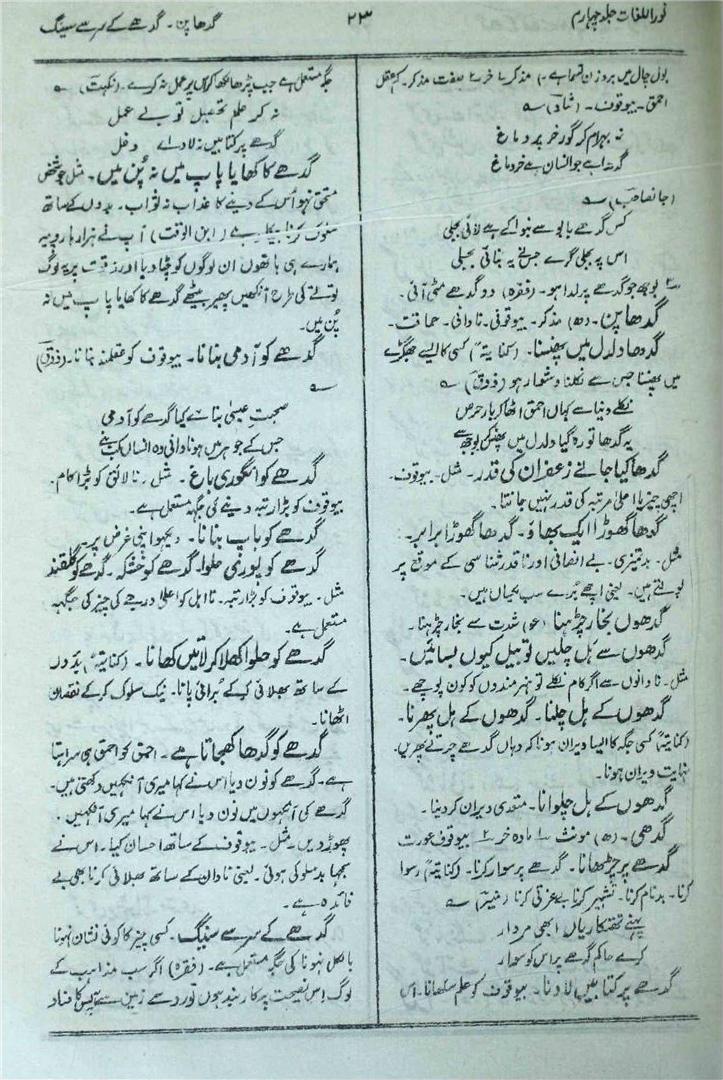 نور اللغات جلد چہارم
۲۳
گدھا پن۔ گدھے کے سر سے سینگ
بول چال میں بروزن تسما ہے۔) مذکر ۱۔ خر ۲۔ صفت مذکر۔ کم عقل
احمق۔ بیوقوف۔ (شاد) ؎
نہ بہرام کر گور خر پر دماغ
گدھا ہے جو انسان ہے خر دماغ
(جانصاحب) ؎
کس گدھے
اس پہ بجلی گرے
۳۔ بوجھ جو گدھے پر لدا ہو۔ (فقرہ) دو گدھے مٹی آئی۔
گدھا پن۔ (ھ) مذکر۔ بیوقوفی۔ نادانی۔ حماقت۔
گدھا دلدل میں پھنسنا۔ (کنایتہً) کسی کا ایسے جھگڑے
میں پھنسنا جس سے نکلنا دشوار ہو (ذوقؔ) ؎
نکلے دنیا سے کہاں احمق اٹھا کر بار حرص
یہ گدھا تو رہ گیا دلدل میں پھنس کر بوجھ سے
گدھا کیا جانے زعفران کی قدر۔ مثل۔ بیوقوف۔
اچھی چیز یا اعلیٰ مرتبہ کی قدر نہیں جانتا۔
گدھا گھوڑا ایک بھاؤ۔ گدھا گھوڑا برابر۔
مثل۔ بدتمیزی۔ بے انصافی اور ناقدر شناسی کے موقع پر
بولتے ہیں۔ یعنی اچھے بُرے سب یکساں ہیں۔
گدھوں بخار چڑھنا (عو) شدت سے بخار چڑھنا۔
گدھوں سے ہل چلیں تو بیل کیوں بسائیں۔
مثل۔ نادانوں سے اگر کام نکلے تو ہنرمندوں کو کون پوچھے۔
گدھوں کے ہل چلنا۔ گدھوں کے ہل پھرنا۔
(کنایتہً) کسی جگہ کا ایسا ویران ہونا کہ وہاں گدھے چرتے پھریں۔
نہایت ویران ہونا۔
گدھوں کے ہل چلوانا۔ متعدی ویران کر دینا۔
گدھی۔ (ھ) مونث ۱۔ مادہ خر ۲۔ بیوقوف عورت
گدھے پر چڑھانا۔ گدھے پر سوار کرنا۔ (کنایتہً) رسوا
کرنا۔ بدنام کرنا۔ تشہیر کرنا بے عزتی کرنا ؎
پہنے ہتھکڑیاں ابھی مردار
کرے حاکم گدھے پر اس کو سوار
گدھے پر کتابیں لادنا۔ بیوقوف کو علم سکھانا۔ اس
جگہ مستعمل ہے جب پڑھ لکھ کر اس پر عمل نہ کرے۔ (نکہتؔ) ؎
نہ کر علم تحصیل تو بے عمل
گدھے پر کتابیں نہ لادے دغل
گدھے کا کھایا پاپ میں نہ پُن میں۔ مثل جو شخص
مستحق نہ ہو اُس کے دینے کا عذاب نہ ثواب۔ بدوں کے ساتھ
سلوک کرنا بیکار ہے (ابن الوقت) آپ نے ہزارہا روپیہ
ہمارے ہی ہاتھوں ان لوگوں کو چٹا دیا اور وقت پر یہ لوگ
توتے کی طرح آنکھیں پھیر بیٹھے گدھے کا کھایا پاپ میں نہ
پُن میں۔
گدھے کو آدمی بنانا۔ بیوقوف کو عقلمند بنانا۔ (ذوقؔ)
؎
صحبتِ عیسیٰ بنائے کیا گدھے کو آدمی
جس کے جوہر میں ہو نادانی وہ انساں کب بنے
گدھے کو انگوری باغ۔ مثل۔ نالائق کو بڑا کام۔
بیوقوف کو بڑا رتبہ دینے کی جگہ مستعمل ہے۔
گدھے کو باپ بنانا۔ دیکھو اپنی غرض پر۔
گدھے کو پوری حلوا۔ گدھے کو خشکہ۔ گدھے کو گلقند
مثل۔ بیوقوف کو بڑا رتبہ۔ نااہل کو اعلیٰ درجے کی چیز کی جگہ
مستعمل ہے۔
گدھے کو حلوا کھلا کر لاتیں کھانا۔ (کنایتہً) بدوں
کے ساتھ بھلائی کرکے بُرائی پانا۔ نیک سلوک کرکے نقصان
اٹھانا۔
گدھے کو گدھا کھجاتا ہے۔ احمق کو احمق ہی سراہتا
ہے۔ گدھے کو نون دیا اس نے کہا میری آنکھیں دکھتی ہیں۔
گدھے کی آنکھوں میں نون دیا اس نے کہا میری آنکھیں
پھوڑ دیں۔ مثل۔ بیوقوف کے ساتھ احسان کیا۔ اس نے
سمجھا بدسلوکی ہوئی۔ یعنی نادان کے ساتھ بھلائی کرنا بھی بے
فائدہ ہے۔
گدھے کے سر سے سینگ۔ کسی چیز کا کوئی نشان نہ ہونا
بالکل نہ ہونا کی جگہ مستعمل ہے۔ (فقرہ) اگر سب مذاہب کے
لوگ اس نصیحت پر کاربند ہوں تو روئے زمین سے آپس کا فساد